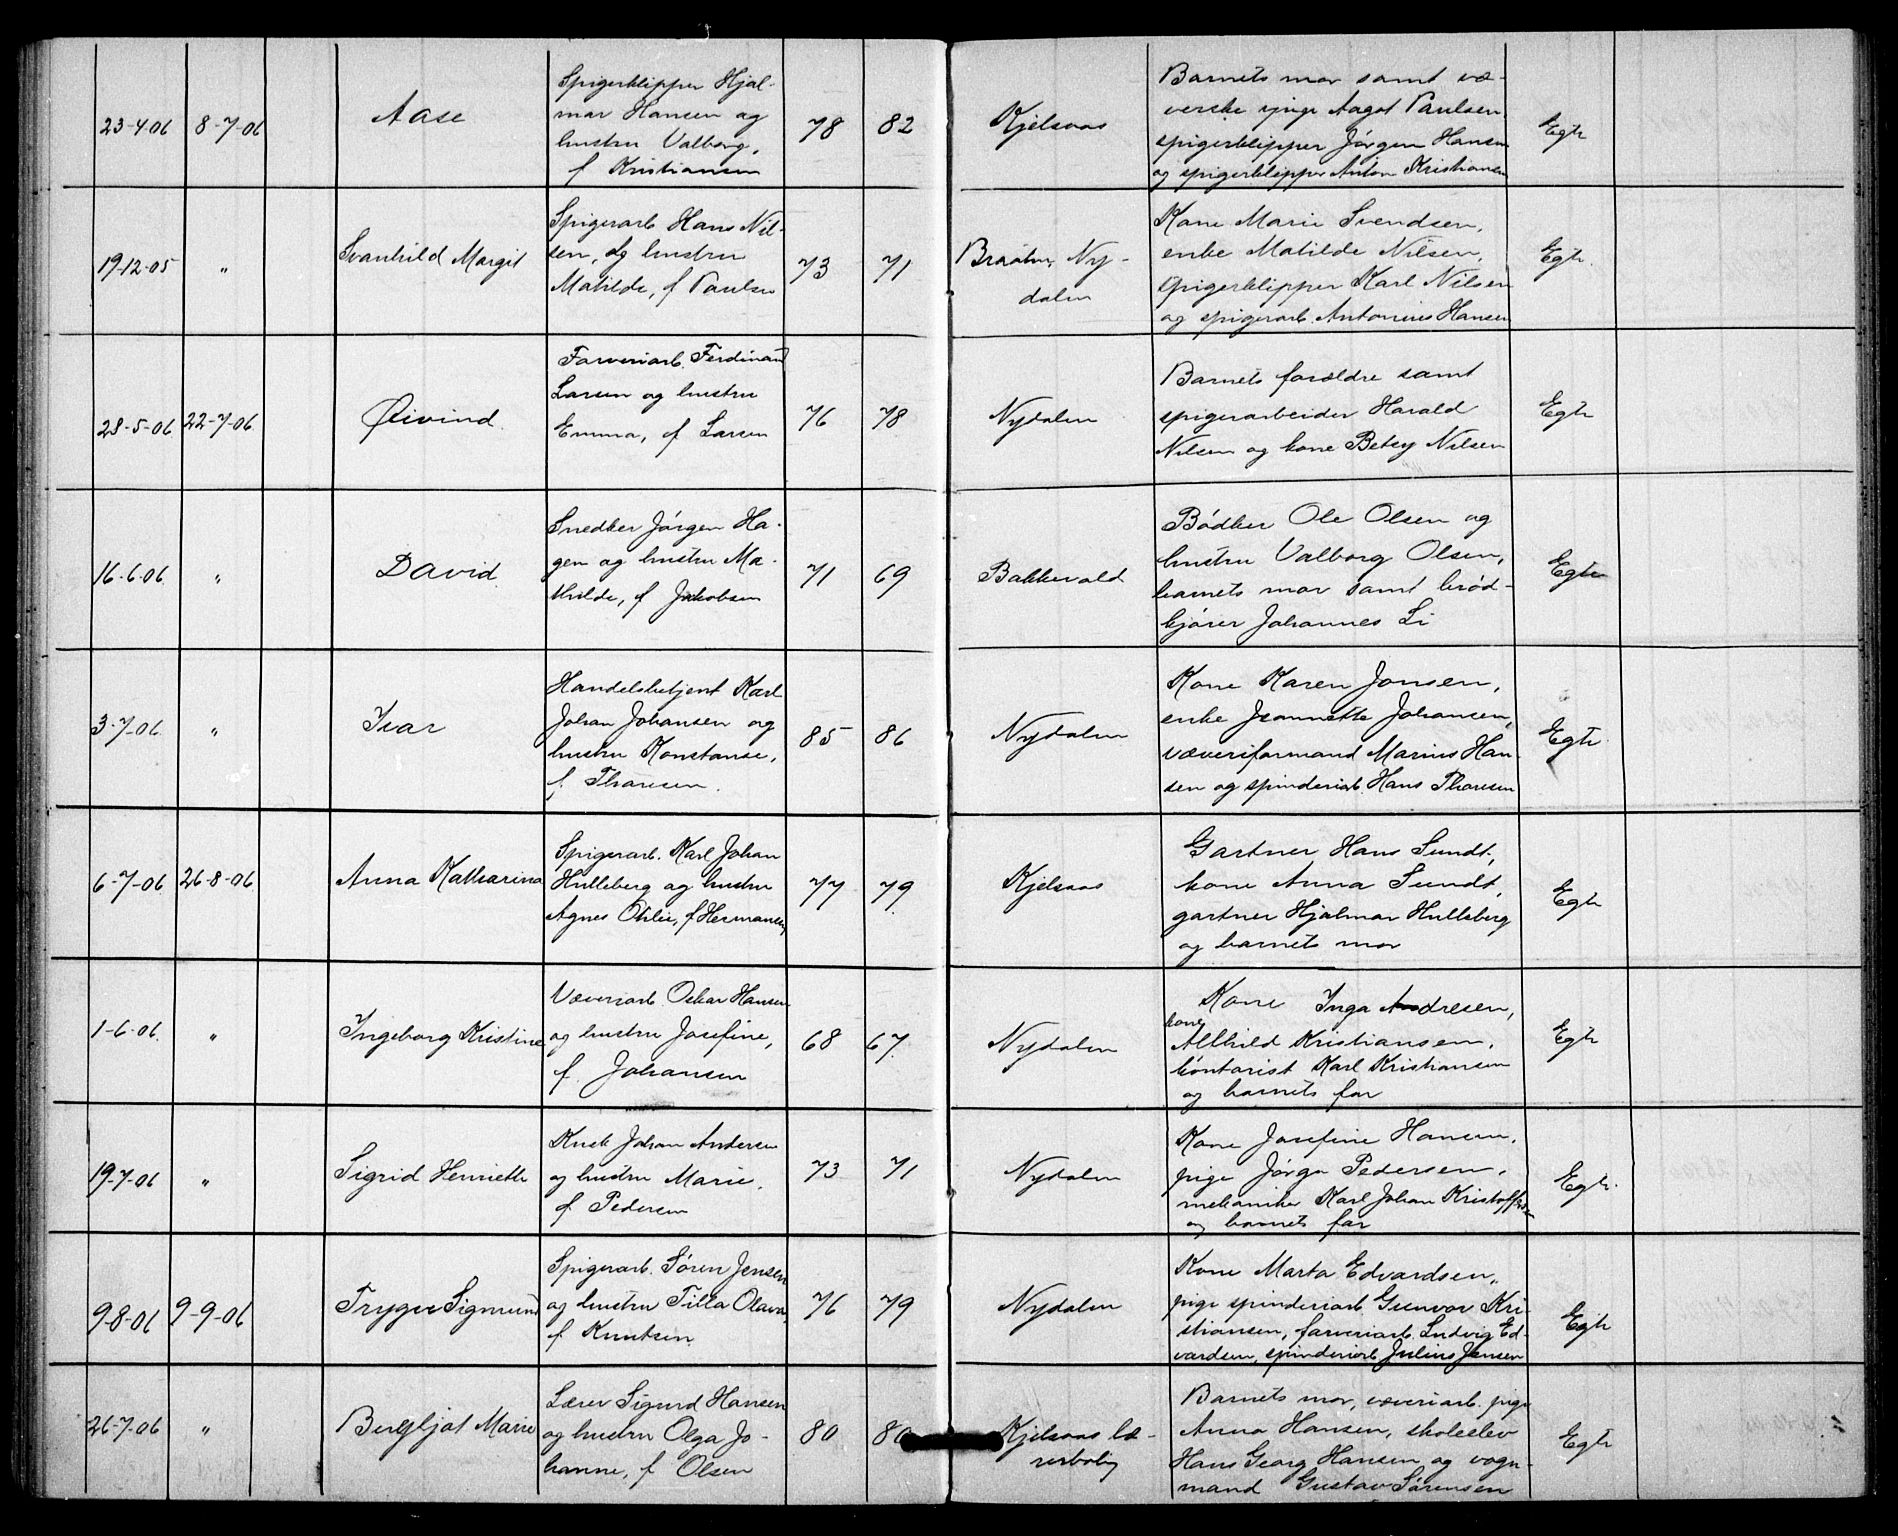 23-4-06 8-7-06 Aase
Spigerklipper Hjal-
mar Hansen og
hustru Valborg,
f Kristiansen
78 82 Kjelsaas
Barnets mor samt væ-
verske pige Aagot Paulsen
spigerklipper Jørgen Hansen
og spigerklipper Anton Kristiansen
Egte
19-12-05 " Svanhild Margit
Spigerarb Hans Nil-
sen, og hustru
Matilde, f Paulsen
73 71
Braaten, Ny-
dalen
Kone Marie Svendsen,
enke Matilde Nilsen,
spigerklipper Karl Nilsen
og spigerarb. Antonius Hansen
Egte
28-5-06 22-7-06 Øivind
Farveriarb. Ferdinand
Larsen og hustru
Emma, f Larsen
76 78 Nydalen
Barnets forældre samt
spigerarbeider Harald
Nilsen og kone Betsy Nilsen
Egte
16-6-06 " David
Snedker Jørgen Ha-
gen og hustru Ma-
thilde, f Jakobsen
71 69 Bakkevold
Bødker Ole Olsen og
hustru Valborg Olsen,
barnets mor samt brød-
kjører Johannes Li
Egte
3-7-06 " Ivar
Handelsbetjent Karl
Johan Johansen og
hustru Konstanse,
f. Thoresen
85 86 Nydalen
Kone Karen Jonsen,
enke Jeannette Johansen,
væveriformand Marius Han-
sen og spinderiarb. Hans Thoresen
Egte
6-7-06 26-8-06 Anna Katharina
Spigerarb. Karl Johan
Hulleberg og hustru
Agnes Otilie, f Hermansen
77 79 Kjelsaas
Gartner Hans Sundt,
kone Anna Sundt,
gartner Hjalmar Hulleberg
og barnets mor
Egte
1-6-06 " Ingeborg Kristine
Væveriarb Oskar Hansen
og hustru Josefine,
f. Johansen
68 67 Nydalen
Kone Inga Andresen,
kone
Alfhild Kristiansen,
kontorist Karl Kristiansen
og barnets far
Egte
19-7-06 " Sigrid Henriette
Kusk Johan Andersen
og hustru Marie,
f Pedersen
73 71 Nydalen
Kone Josefine Hansen,
pige Jørga Pedersen,
mekaniker Karl Johan Kristoffersen
og barnets far
Egte
9-8-06 9-9-06 Trygve Sigmund
Spigerarb. Søren Jensen
og hustru Tilla Olava,
f Knutsen
76 79 Nydalen
Kone Marta Edvardsen,
pige spinderiarb Gunvor Kri-
stiansen, farveriarb. Ludvig Ed-
vardsen, spinderiarb Julius Jensen
Egte
26-7-06 " Bergljot Marie
Lærer Sigurd Hansen
og hustru Olga Jo-
hanne, f Olsen
80 80
Kjelsaas læ-
rerbolig
Barnets mor, væveriarb. pige
Anna Hansen, skoleelev
Hans Georg Hansen og vogn-
mand Gustav Sørensen
Egte